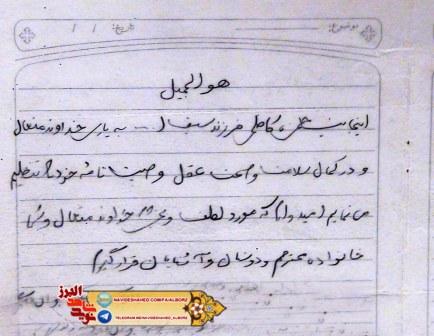 موضوع: تاریخ: / /
هو الجمیل
اینجانب کاظمی فرزند به یاری خداوند متعال
و در کمال سلامت و صحت عقل وصیت نامه خود را تنظیم
می نمایم (امیدوارم) که مورد لطف و خداوند متعال و شما
خانواده محترم و دوستان و آشنایان قرار گیرد)
NAVIDESHAHED.COM/FA/ALBORZ
TELEGRAM.ME/NAVIDESHAHED_ALBORZ
البرز